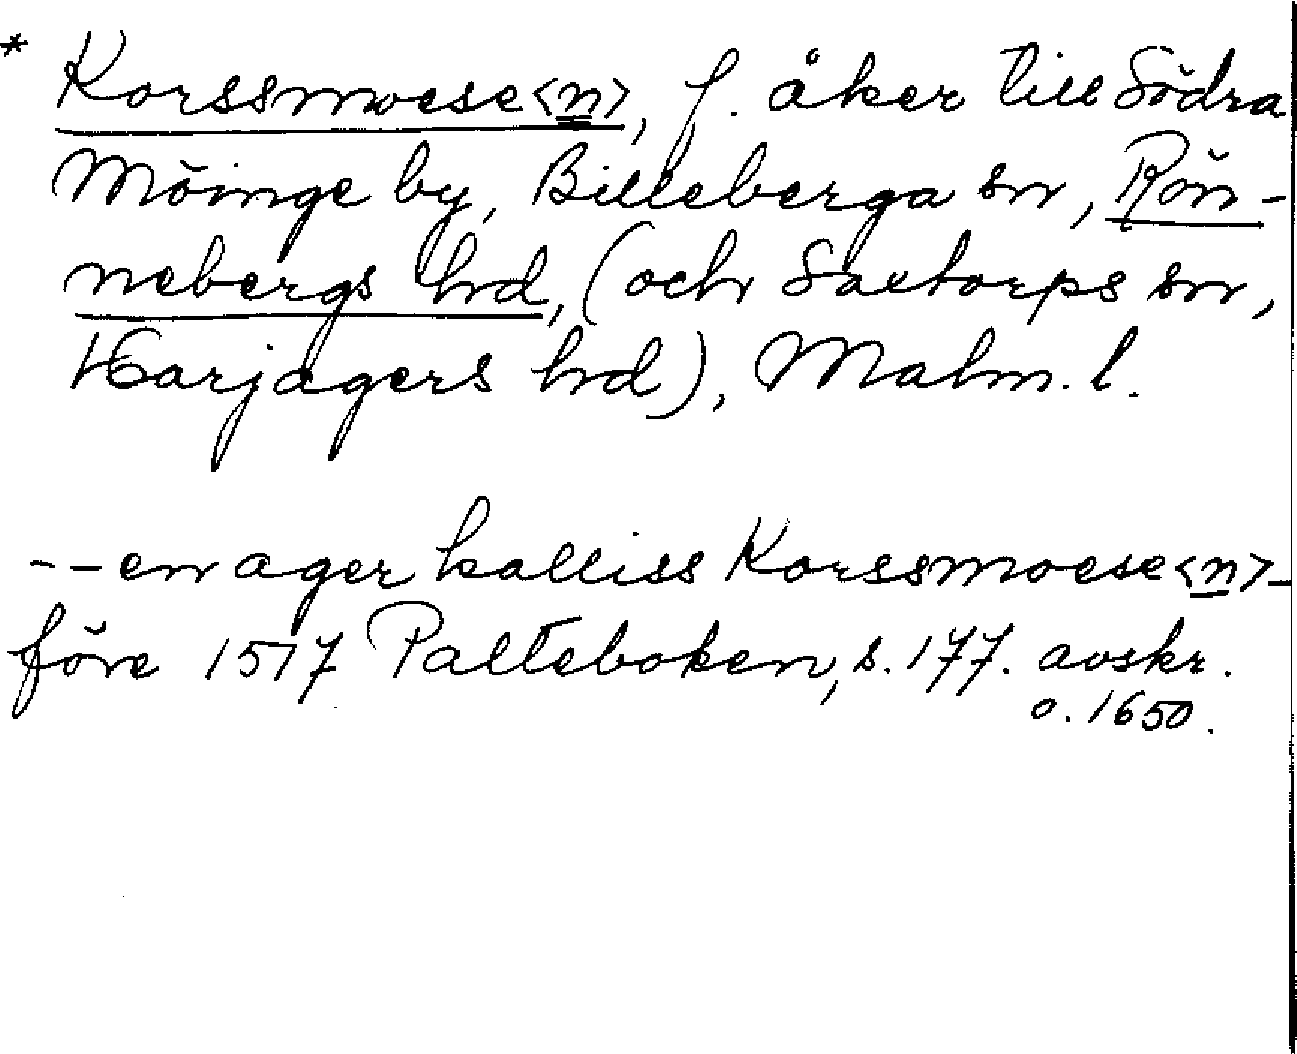 * Korssmoese<n>, f. åker till Södra
Möinge by, Billeberga sn, Rön-
nebergs hd, (och Saxtorps sn,
Harjagers hd), Malm. l.
-- en ager kalliss Korssmoese<n> -
före 1517 Palteboken, s. 177. avskr.
o. 1650.